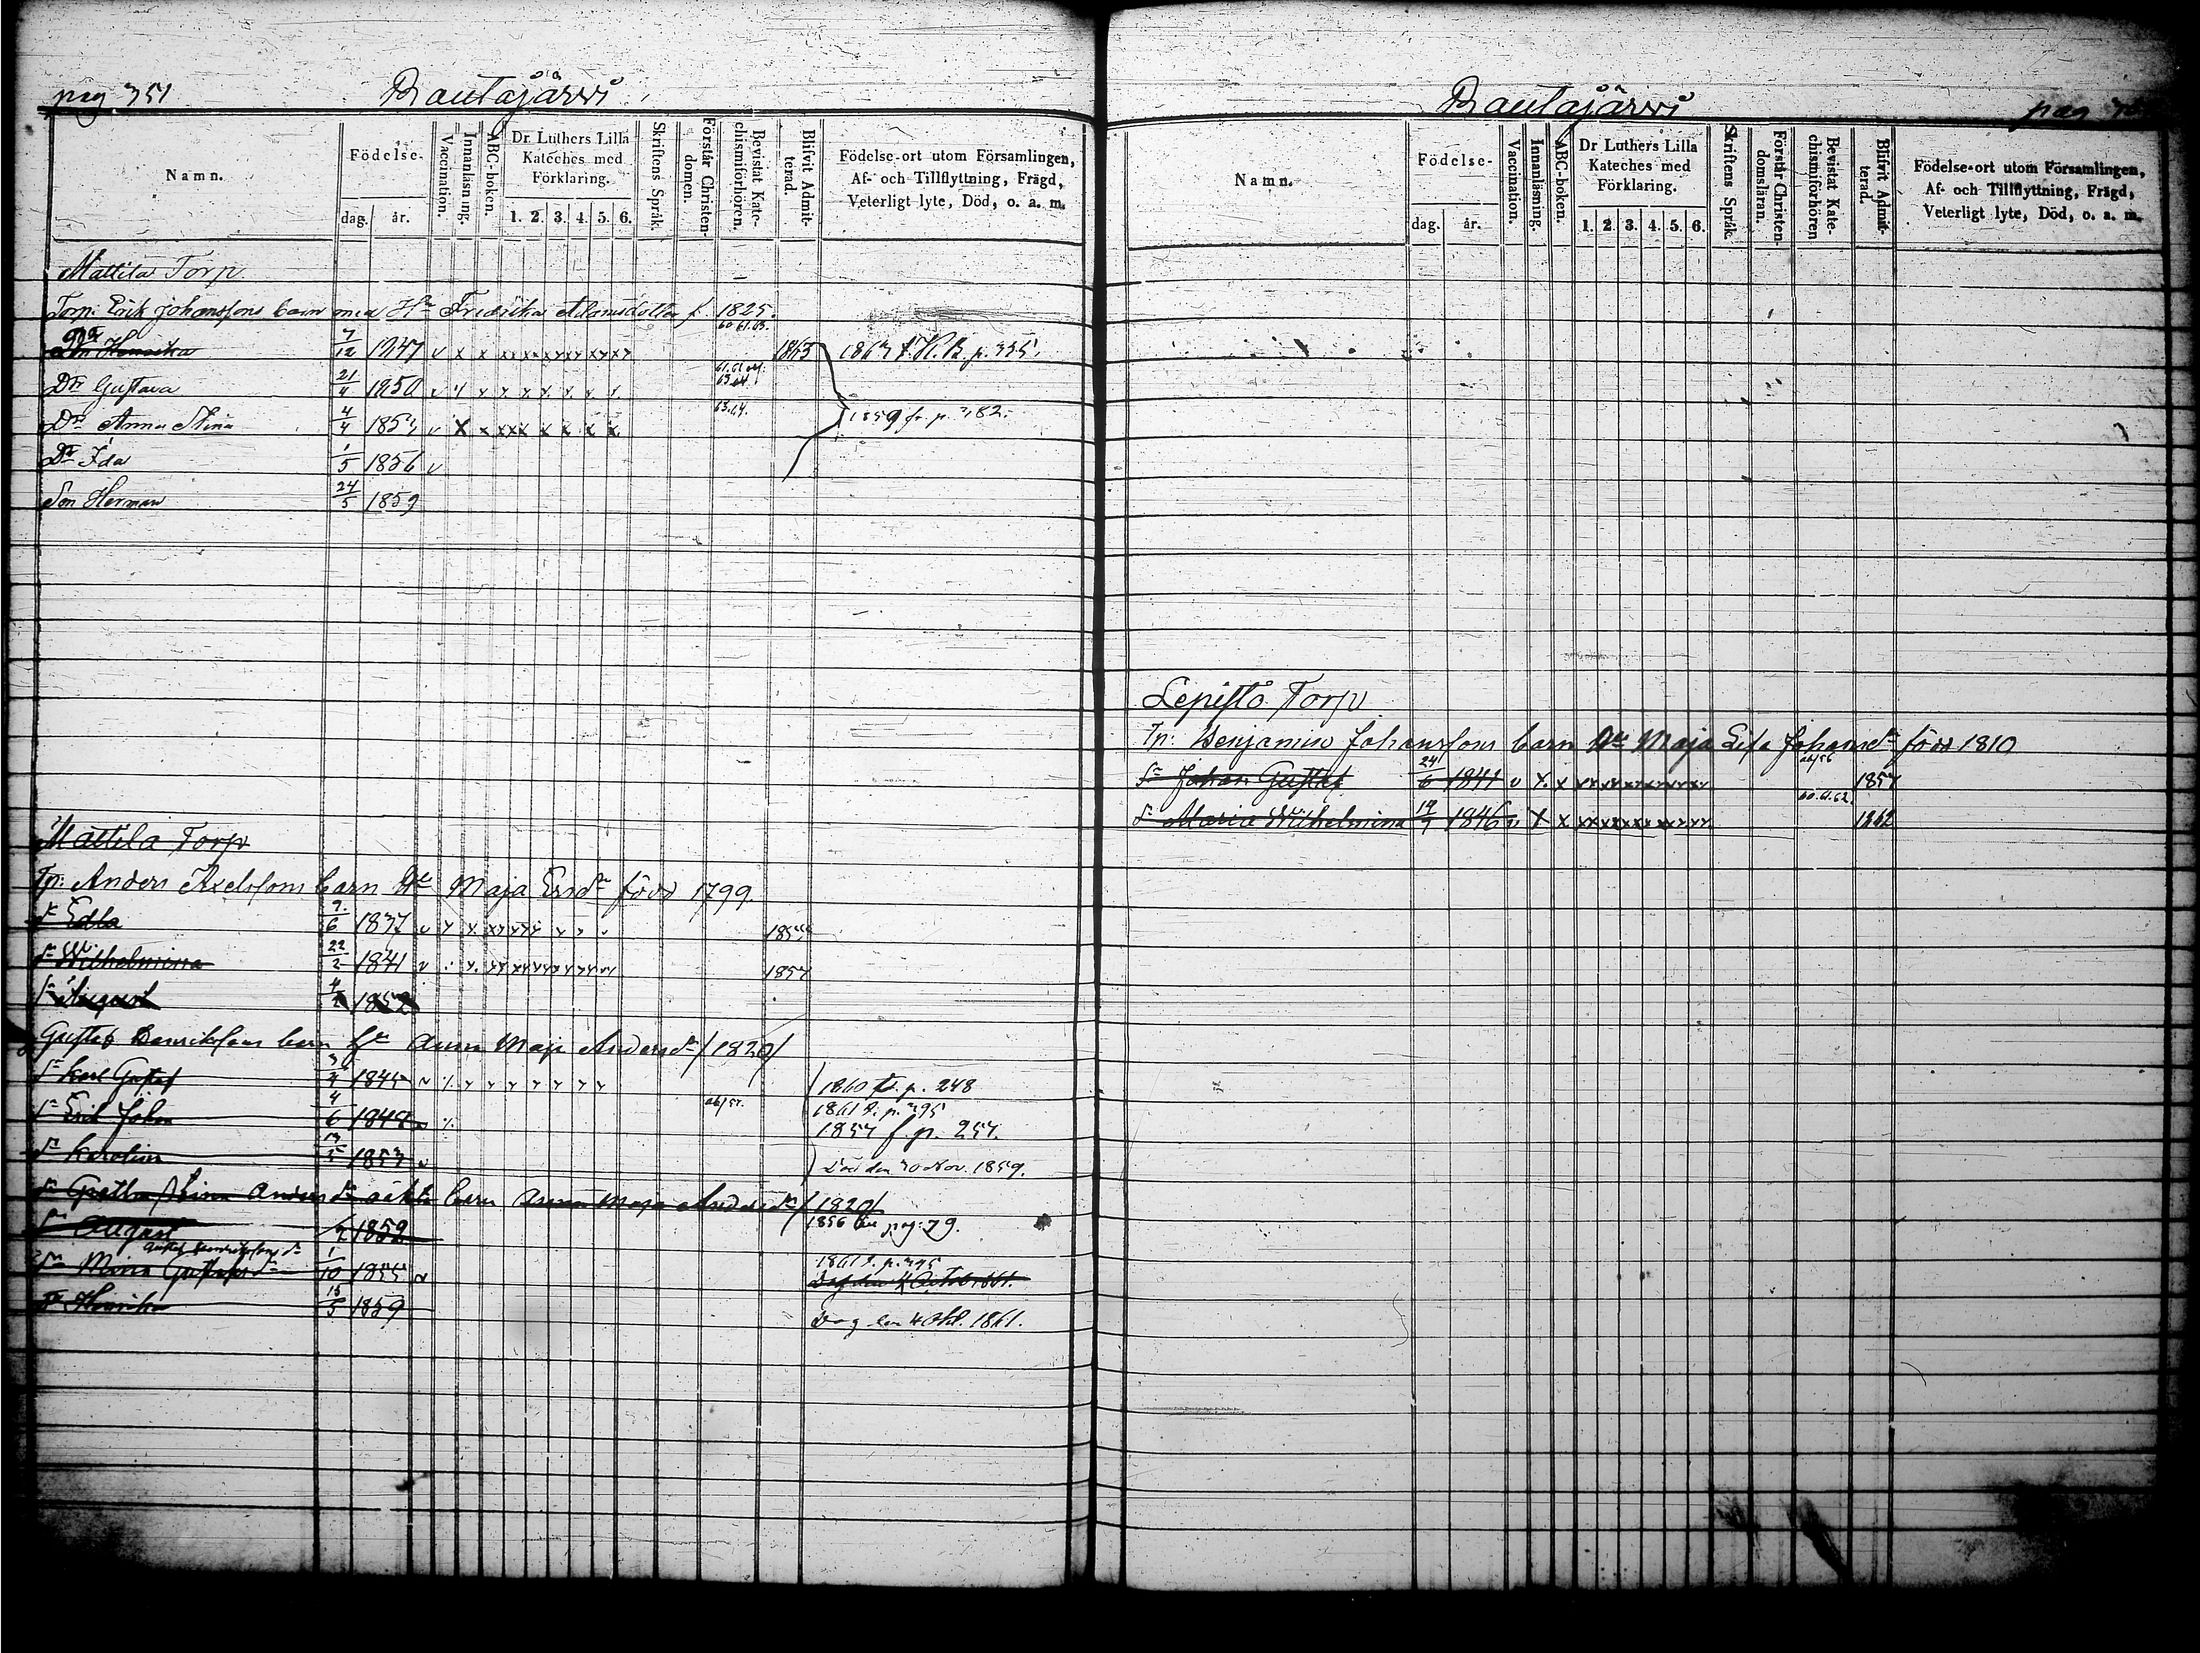 pag 351
Rautajärvi
Namn.
Födelse-
dag.
år.
Vaccination.
Innanläsning.
ABC-boken.
Dr Luthers Lilla
Kateches med
Förklaring.
1. 2. 3. 4. 5. 6.
Skriftens Språk.
Förstår Christen-
domen.
Bevistat Kate-
chismiförhören.
Blifvit Admit-
terad.
Födelse-ort utom Församlingen,
Af- och Tillflyttning, Frägd,
Veterligt lyte, Död, o. a. m.
Mattila Torp
Torp. Erik Johanssons barn med Hu Fredrika Adamsdotter f. 1825.
7/12 1847 v x x 60 61. 63. 1863 1863 K. B. p. 335.
Dr Gustava 21/4 1850
Dr Anna Stina 4/4 1853 63.64. 1859 fr. p. 382.
Dr Ida 1/5 1856 v
Son Herman 24/5 1859
Mattila Torp
Tp: Anders Axelssons barn Hu Maja Ersdr född 1799.
dr Edla 9/6 1837 1855
dr Wilhelmina 22/2 1841 1857
August 1852
Gustaf Henrikssons barn Anna Maja Andersdr /1820/
Karl Gustaf 3/4 1845 1860 p. 248
Erik Johan 4/6 1861 p. 395
1857 f. p. 257.
Karolina 13/5 1853 Död den 30 Nov. 1859.
Greta Stina Andersdr barn Anna Maja Andersdr /1820/
August 1852 1856 pag: 79.
Gustaf Henrikssons dr
Mina Gustafsdr 1/10 1855 1861 p. 395
Henrika 15/5 1859 Dog den 4 Okt. 1861.
Rautajärvi
pag
Namn.
Födelse-
dag.
år.
Vaccination.
Innanläsning.
ABC-boken.
Dr Luthers Lilla
Kateches med
Förklaring.
1. 2. 3. 4. 5. 6.
Skriftens Språk.
Förstår Christen-
domsläran.
Bevistat Kate-
chismiförhören
Blifvit Admit-
terad.
Födelse-ort utom Församlingen,
Af- och Tillflyttning, Frägd,
Veterligt lyte, Död, o. a. m.
Lepistö Torp
Tp: Benjamin Johanssons barn Hu Maja Lisa Johansdr född 1810
Johan Gustaf 24/6 1841 1857
dr Maria Wilhelmina 1846 60. 61. 62. 1862